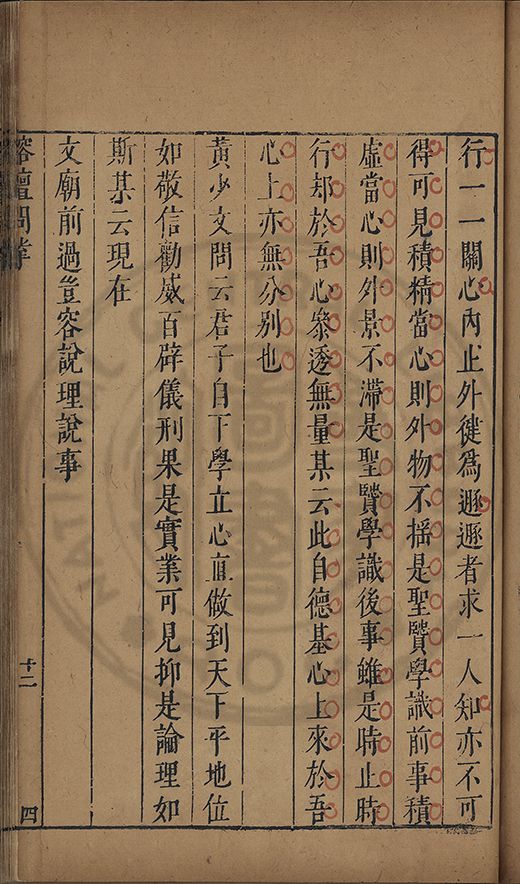 行一一關心內止外徙爲遯遯者求一人知亦不可
得可見積精當心則外物不摇是聖賢學識前事積
虛當心則外景不滯是聖賢學識後事雖是時止時
行却於吾心叅透無量某云此自德基心上來於吾
心上亦無分别也
黄少文問云君子自下學立心直做到天下平地位
如敬信勸威百辟儀刑果是實業可見抑是論理如
斯某云現在
文廟前過豈容說理說事
榕壇問業
十二
四